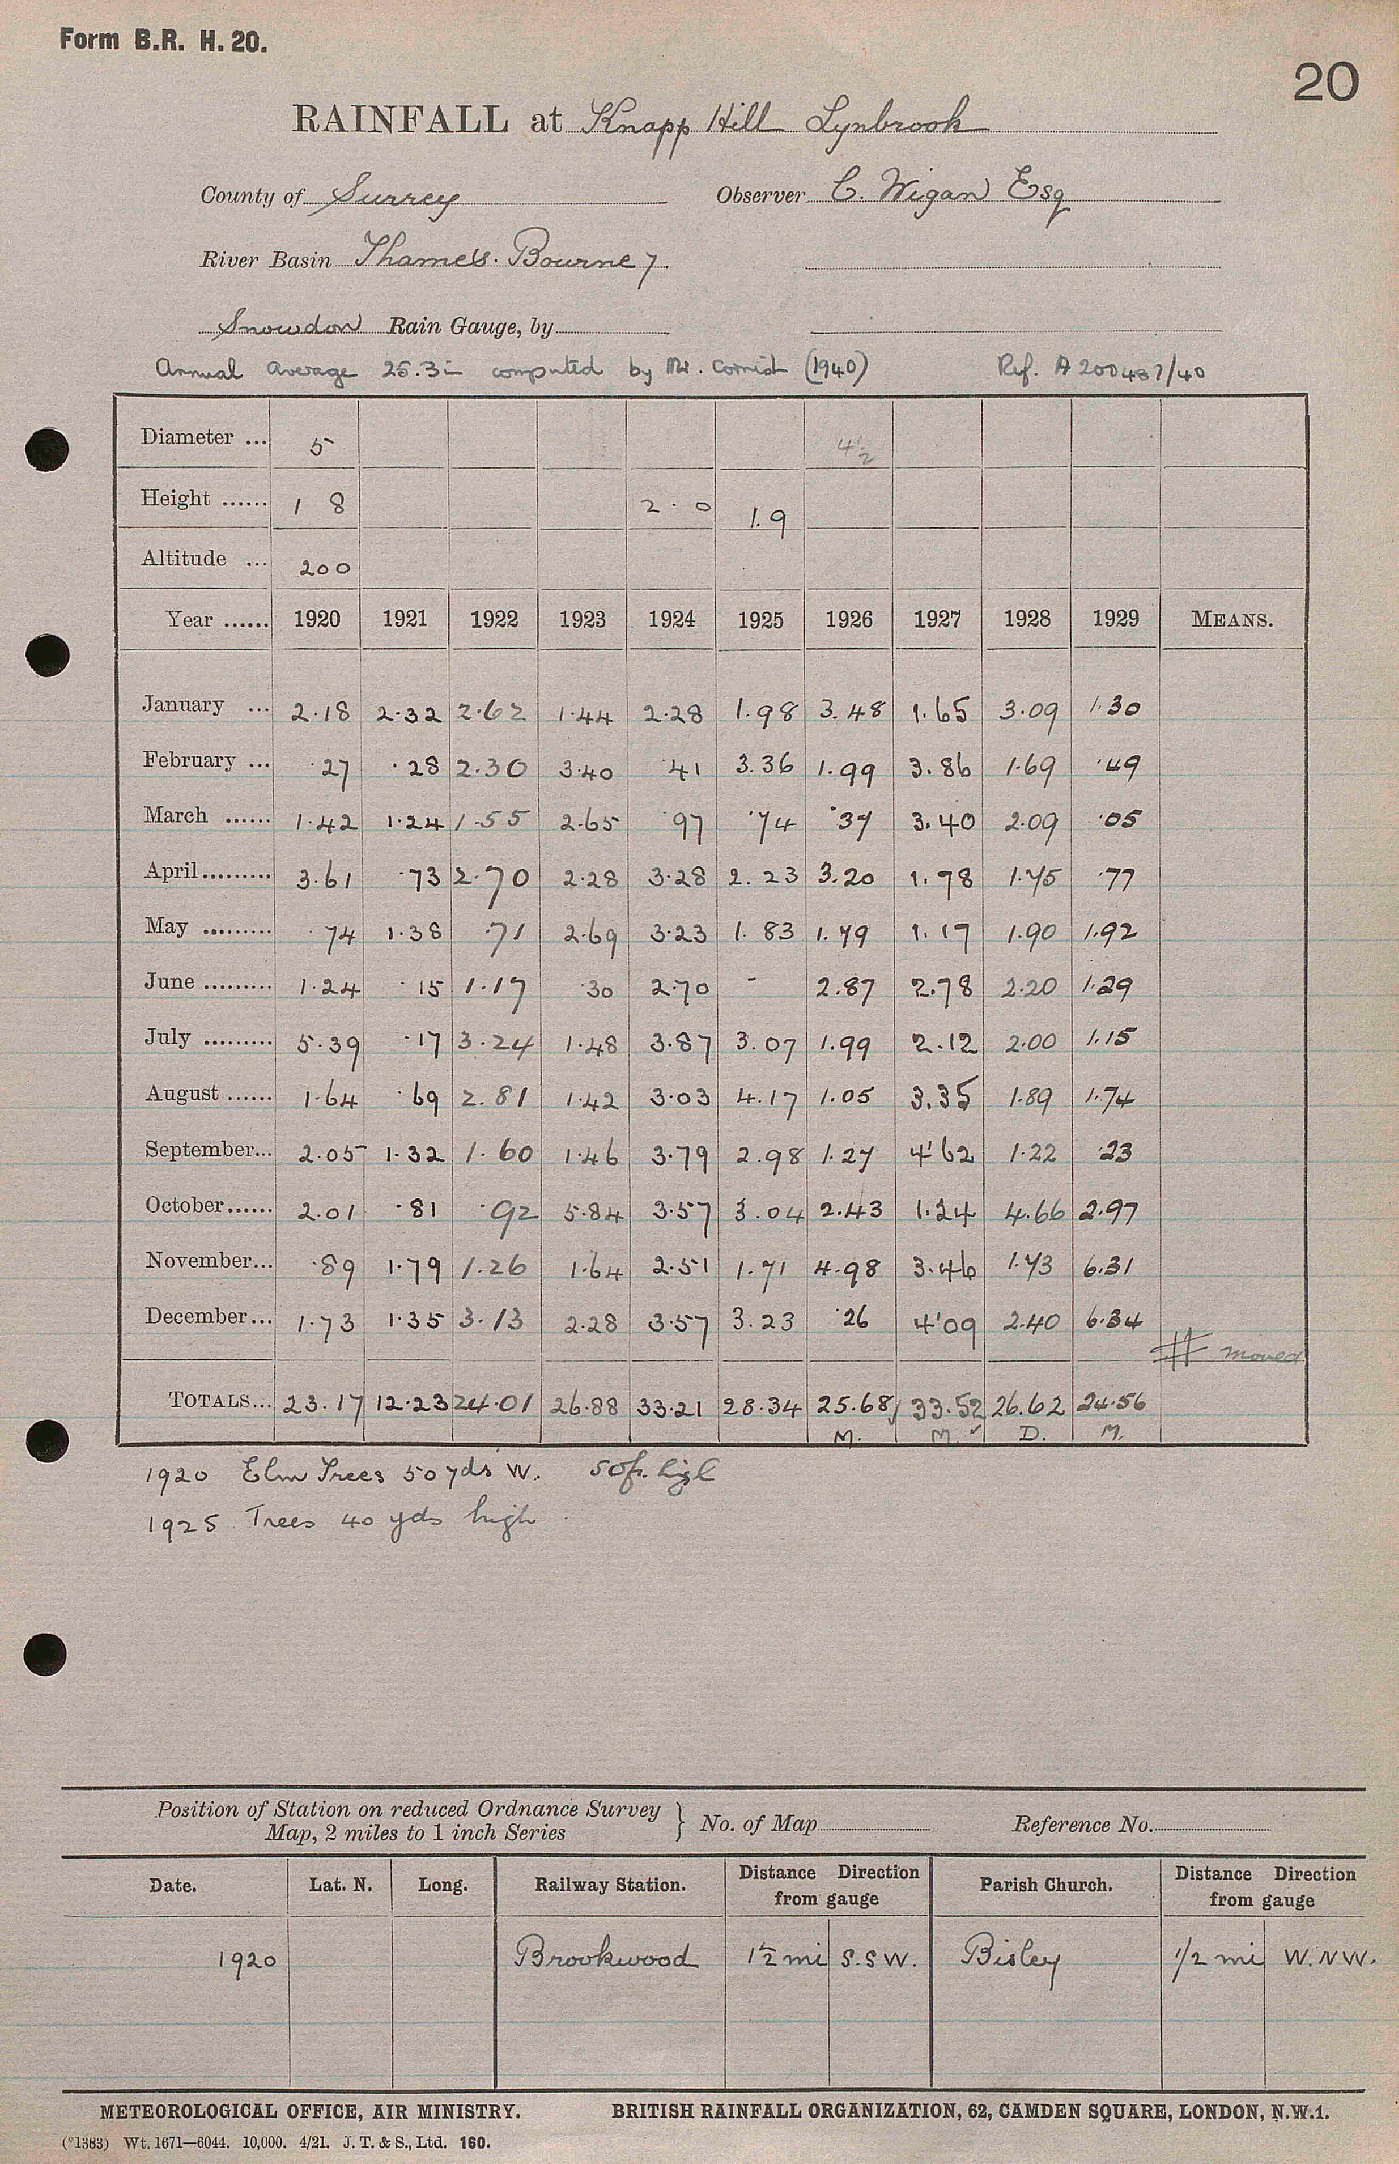 Form B.R. H. 20.
20
RAINFALL at Knapp Hill Lynbrook
County of Surrey Observer C. Wigan Esq
River Basin Thames. Bourne 7.
Snowdon Rain Gauge, by
Annual average 25.3in computed by Mr. Cornish (1940) Ref. A200487/40
Diameter ... 5 4½
Height ...... 1 8 2 . 0 1.9
Altitude ... 200
Year ...... 1920 1921 1922 1923 1924 1925 1926 1927 1928 1929 MEANS.
January ... 2.18 2.32 2.62 1.44 2.28 1.98 3.48 1.65 3.09 1.30
February ... .27 .28 2.30 3.40 .41 3.36 1.99 3.86 1.69 .49
March ...... 1.42 1.24 1.55 2.65 .97 .74 .37 3.40 2.09 .05
April ......... 3.61 .73 2.70 2.28 3.28 2.23 3.20 1.78 1.75 .77
May ......... .74 1.38 .71 2.69 3.23 1.83 1.79 1.17 1.90 1.92
June ......... 1.24 .15 1.17 .30 2.70 - 2.87 2.78 2.20 1.29
July ......... 5.39 .17 3.24 1.48 3.87 3.07 1.99 2.12 2.00 1.15
August ...... 1.64 .69 2.81 1.42 3.03 4.17 1.05 3.35 1.89 1.74
September... 2.05 1.32 1.60 1.46 3.79 2.98 1.27 4.62 1.22 .23
October...... 2.01 .81 .92 5.84 3.57 3.04 2.43 1.24 4.66 2.97
November... .89 1.79 1.26 1.64 2.51 1.71 4.98 3.46 1.73 6.31
December... 1.73 1.35 3.13 2.28 3.57 3.23 .26 4.09 2.40 6.34
# moved
TOTALS... 23.17 12.23 24.01 26.88 33.21 28.34 25.68 33.52 26.62 24.56
M. M. D. M.
1920 Elm Trees 50 yds W. 50ft. high
1925 Trees 40 yds high
Position of Station on reduced Ordnance Survey
Map, 2 miles to 1 inch Series } No. of Map Reference No.
Date. Lat. N. Long. Railway Station. Distance Direction from gauge Parish Church. Distance Direction from gauge
1920 Brookwood 1½ mi S.S W. Bisley 1/2 mi W.NW.
METEOROLOGICAL OFFICE, AIR MINISTRY. BRITISH RAINFALL ORGANIZATION, 62, CAMDEN SQUARE, LONDON, N.W.1.
(*1383) Wt. 1671—6044. 10,000. 4/21. J. T. & S., Ltd. 160.